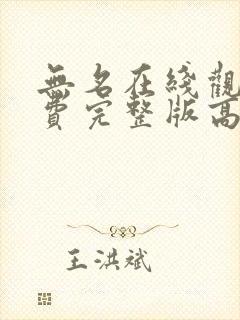 無名在綫觀
費完整版高
王洪斌